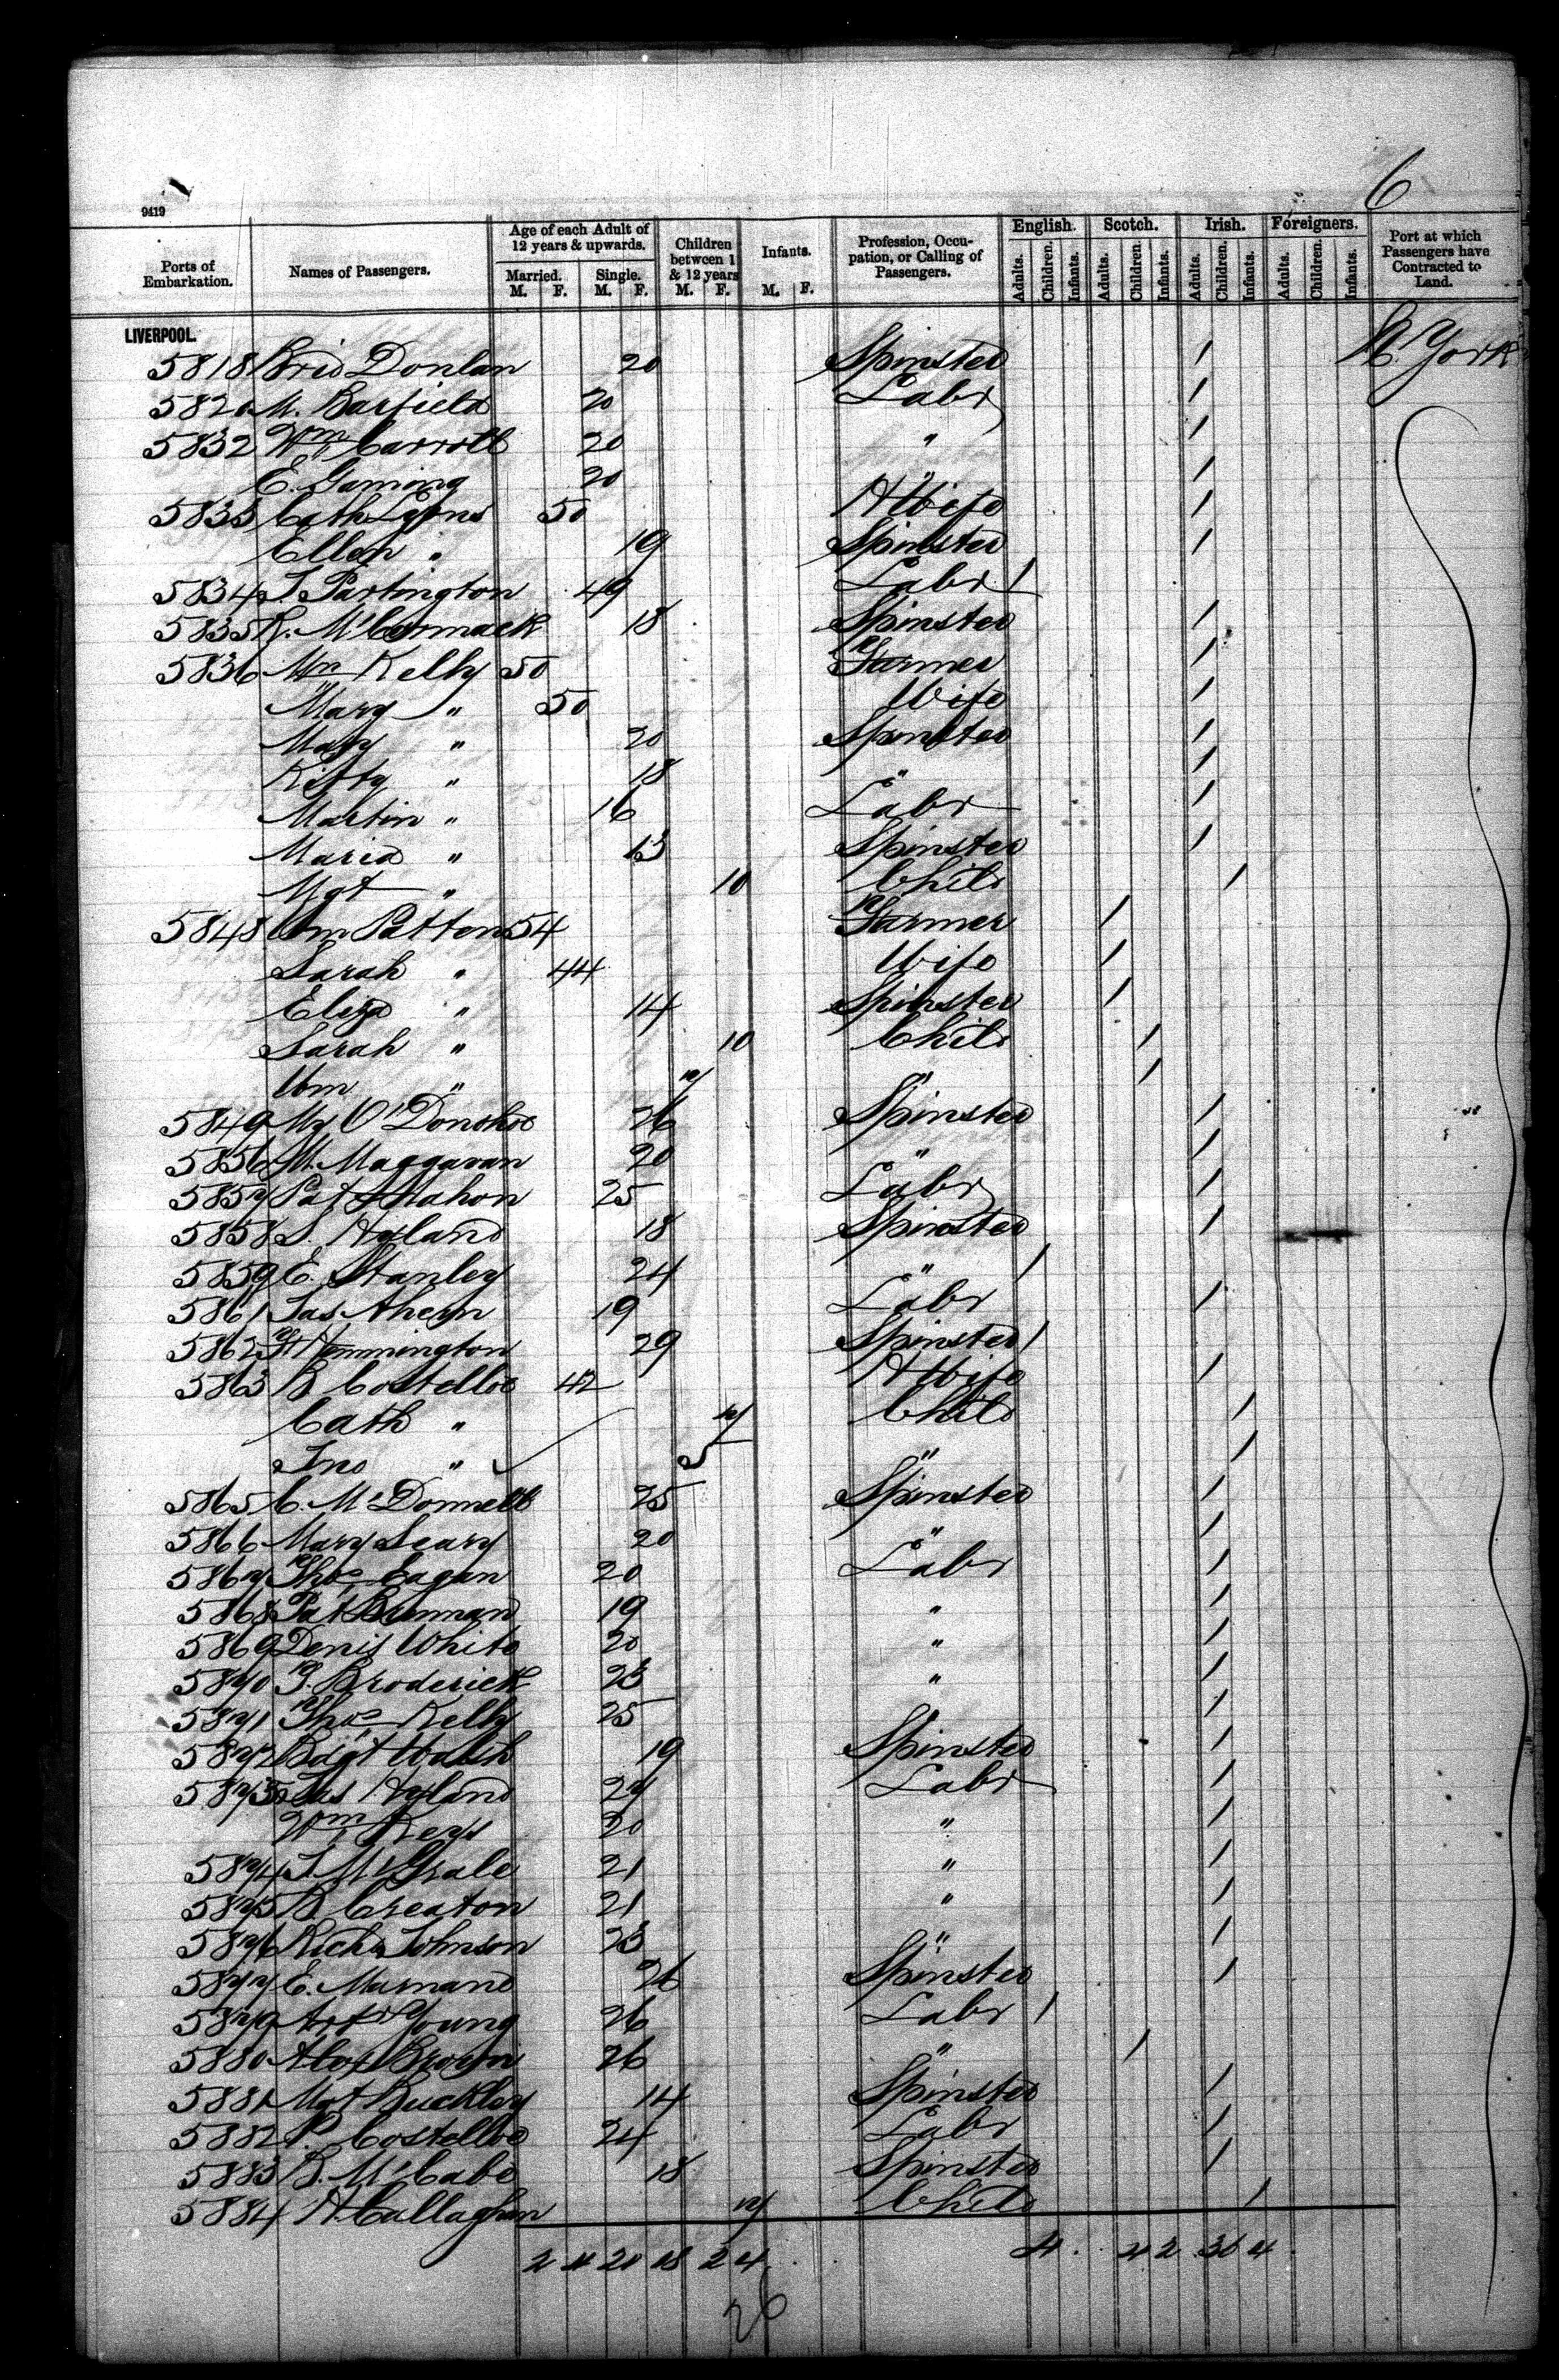 6
9419
Ports of Embarkation. Names of Passengers. Age of each Adult of 12 years & upwards. Married. M. F. Single. M. F. Children between 1 & 12 years M. F. Infants. M. F. Profession, Occupation, or Calling of Passengers. English. Adults. Children. Infants. Scotch. Adults. Children. Infants. Irish. Adults. Children. Infants. Foreigners. Adults. Children. Infants. Port at which Passengers have Contracted to Land.
LIVERPOOL.
5818 Brid Donlan 20 Spinster / N. York
5820 M. Barfield 20 Labr /
5832 Wm Carroll 20 " /
E. Gaming 20 " /
5833 Cath Lyons 50 H Wife /
Ellen " 19 Spinster /
5834 J. Partington 49 Labr /
5835 R. McCormack 18 Spinster /
5836 Mn Kelly 50 Farmer /
Mary " 50 Wife /
Mary " 20 Spinster /
Kitty " 18 " /
Martin " 16 Labr /
Maria " 13 Spinster /
Mgt " 10 Child /
5848 Wm Patten 54 Farmer /
Sarah " 44 Wife /
Eliza " 14 Spinster /
Sarah " 10 Child /
Wm " 7 " /
5849 My O'Donohoe 26 Spinster /
5856 M. Maggavan 20 " /
5857 Pat Mahon 25 Labr /
5858 S. Hyland 18 Spinster /
5859 E. Stanley 24 " /
5861 Jas Ahern 19 Labr /
5862 Hemmington 29 Spinster /
5863 B Costelloe 42 H Wife /
Cath " 7 Child /
Jno " 5 " /
5865 C. McDonnell 25 Spinster /
5866 Mary Leary 20 " /
5867 Thos Eagan 20 Labr /
5868 Pat Brennan 19 " /
5869 Denis White 20 " /
5870 J. Broderick 23 " /
5871 Thos Kelly 25 " /
5872 Bdgt Walsh 19 Spinster /
5873 Jas Hyland 27 Labr /
Wm Keys 20 " /
5874 J. McGrale 21 " /
5875 B Creaton 21 " /
5876 Richd Johnson 23 " /
5877 E. Marnane 26 Spinster /
5879 Artr Young 26 Labr /
5880 Alex Brown 26 " /
5881 Mgt Buckley 14 Spinster /
5882 P. Costelloe 24 Labr /
5883 B. McCabe 18 Spinster /
5884 H. Callaghan 7 Child /
2 4 20 18 2 4 4 4 2 36 4
26